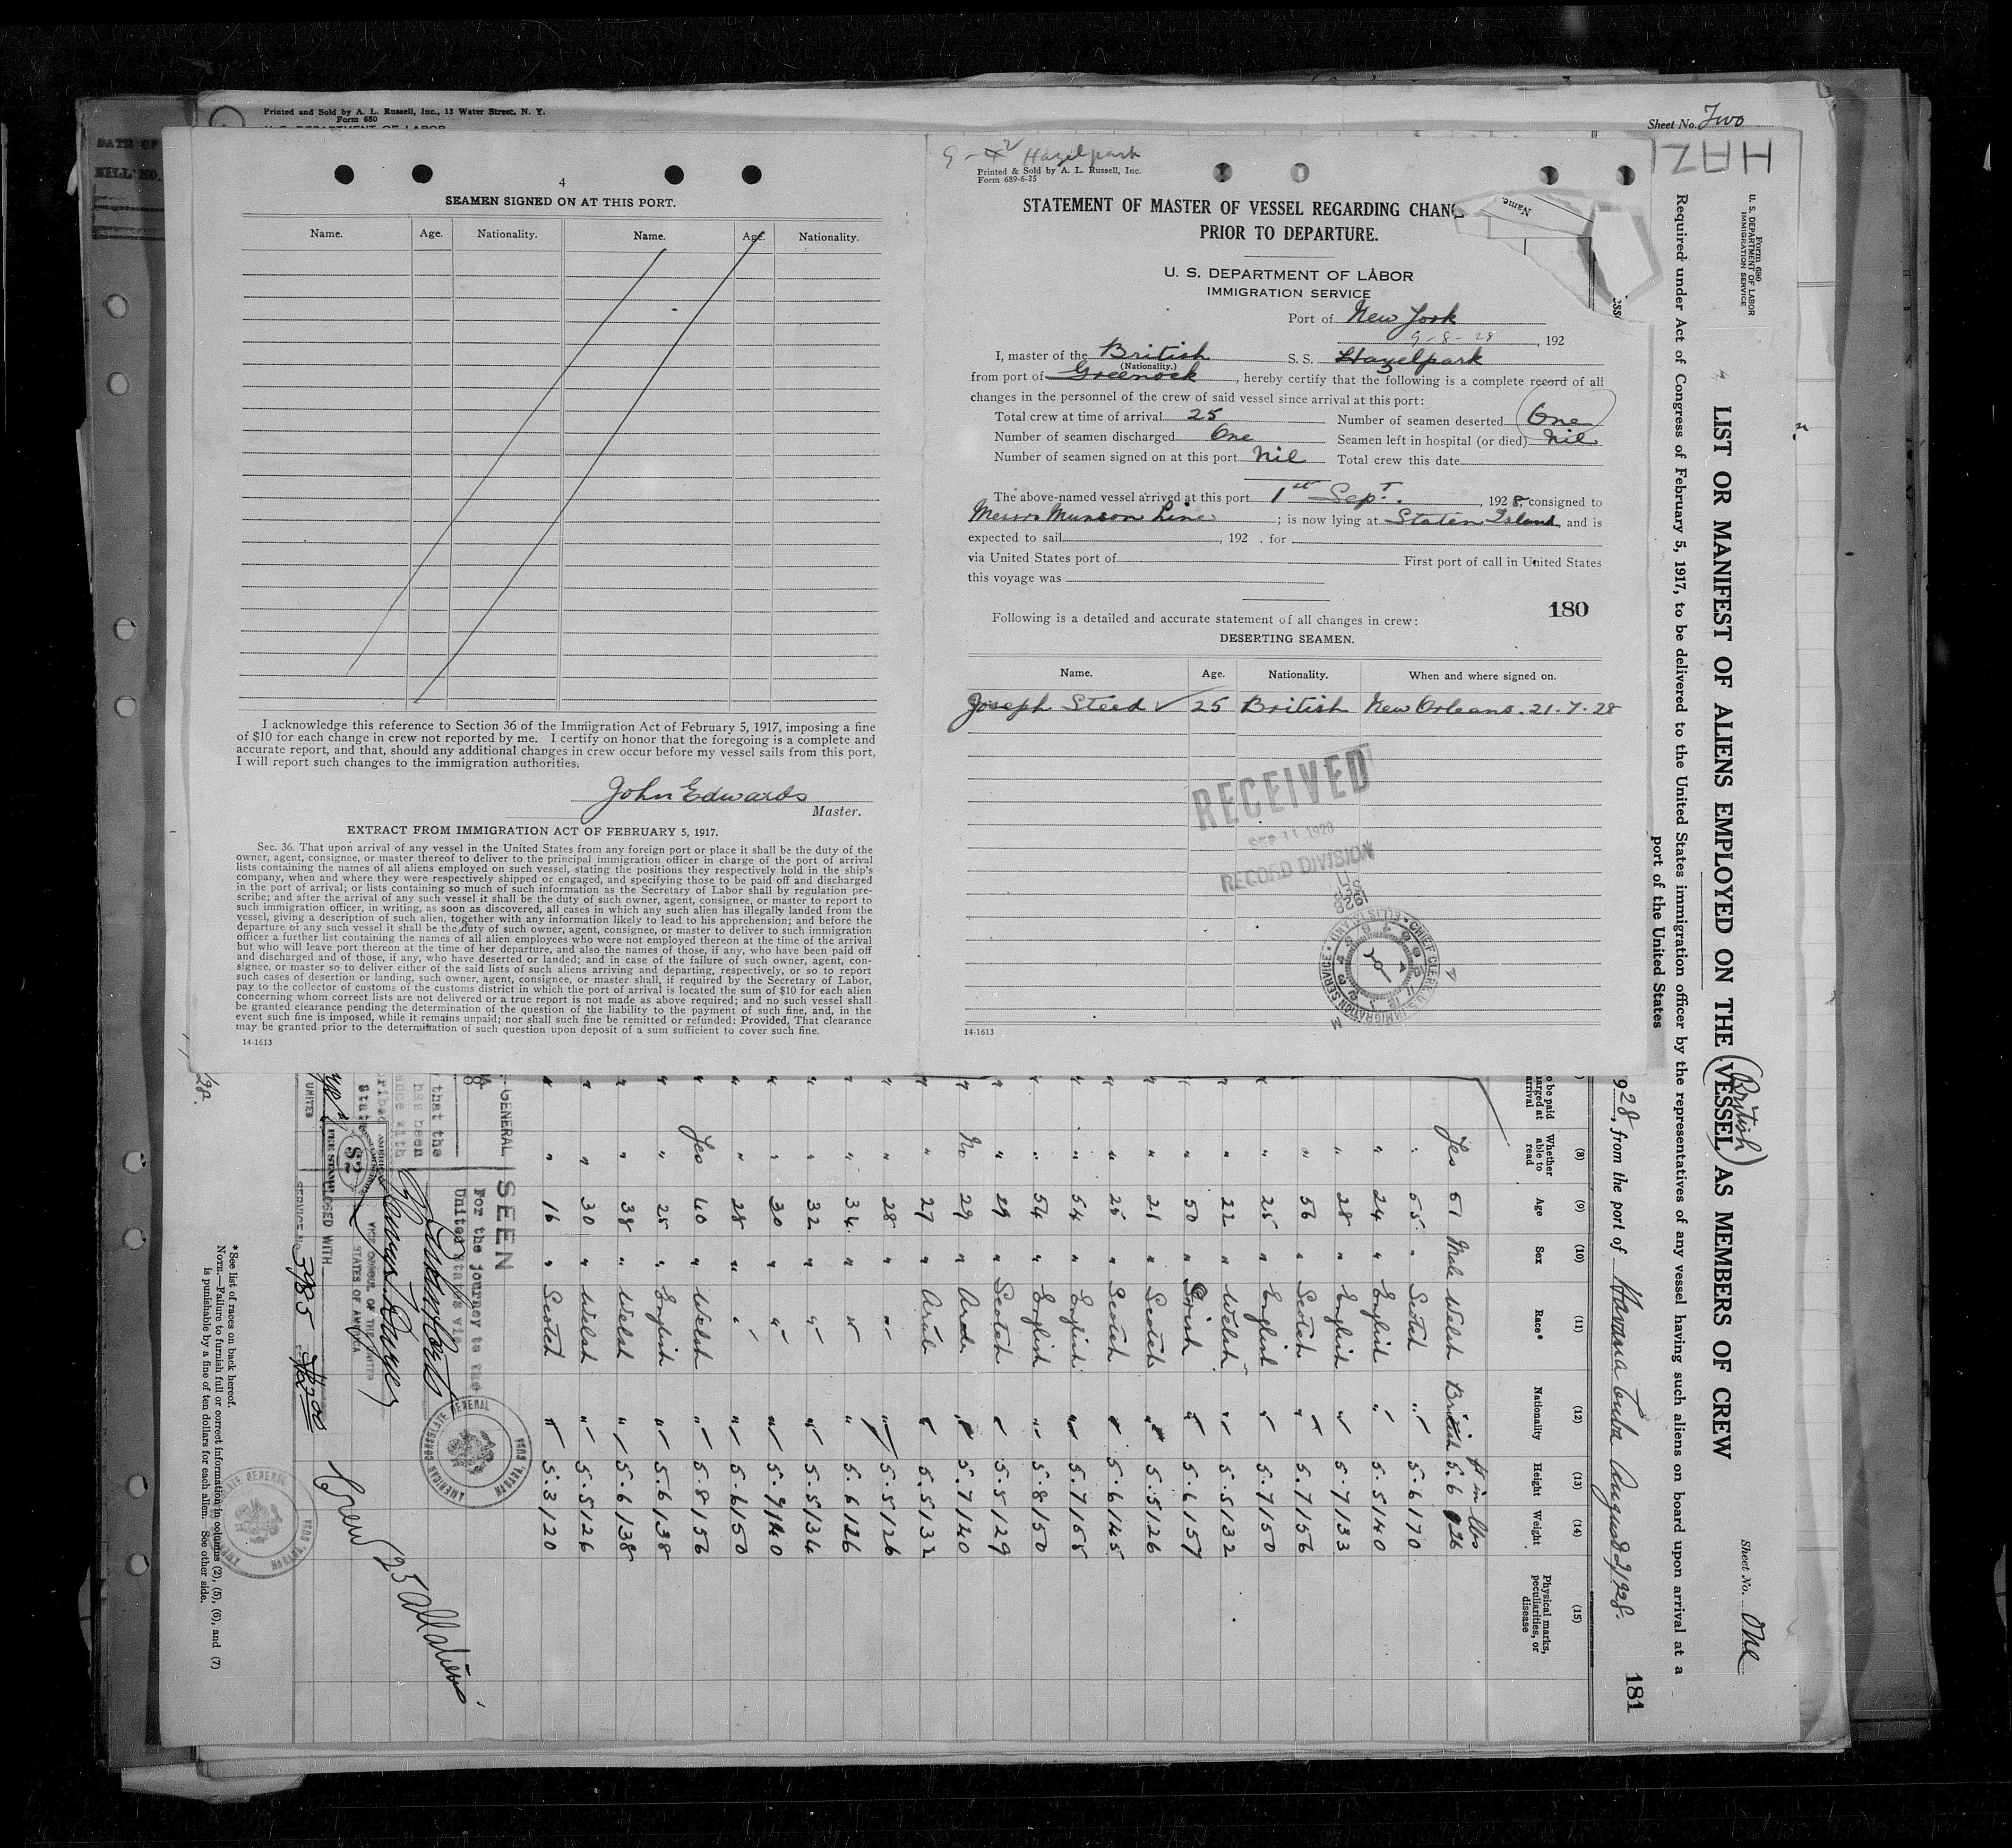 Printed and Sold by A. L. Russell, Inc., 13 Water Street, N. Y.
Form 680
U. S. DEPARTMENT OF LABOR
Sheet No. Two
DATE OF
BILL NO.
4
SEAMEN SIGNED ON AT THIS PORT.
Name. Age. Nationality. Name. Age. Nationality.
I acknowledge this reference to Section 36 of the Immigration Act of February 5, 1917, imposing a fine
of $10 for each change in crew not reported by me. I certify on honor that the foregoing is a complete and
accurate report, and that, should any additional changes in crew occur before my vessel sails from this port,
I will report such changes to the immigration authorities.
John Edwards
Master.
EXTRACT FROM IMMIGRATION ACT OF FEBRUARY 5, 1917.
Sec. 36. That upon arrival of any vessel in the United States from any foreign port or place it shall be the duty of the
owner, agent, consignee, or master thereof to deliver to the principal immigration officer in charge of the port of arrival
lists containing the names of all aliens employed on such vessel, stating the positions they respectively hold in the ship's
company, when and where they were respectively shipped or engaged, and specifying those to be paid off and discharged
in the port of arrival; or lists containing so much of such information as the Secretary of Labor shall by regulation pre-
scribe; and after the arrival of any such vessel it shall be the duty of such owner, agent, consignee, or master to report to
such immigration officer, in writing, as soon as discovered, all cases in which any such alien has illegally landed from the
vessel, giving a description of such alien, together with any information likely to lead to his apprehension; and before the
departure of any such vessel it shall be the duty of such owner, agent, consignee, or master to deliver to such immigration
officer a further list containing the names of all alien employees who were not employed thereon at the time of the arrival
but who will leave port thereon at the time of her departure, and also the names of those, if any, who have been paid off
and discharged and of those, if any, who have deserted or landed; and in case of the failure of such owner, agent, con-
signee, or master so to deliver either of the said lists of such aliens arriving and departing, respectively, or so to report
such cases of desertion or landing, such owner, agent, consignee, or master shall, if required by the Secretary of Labor,
pay to the collector of customs of the customs district in which the port of arrival is located the sum of $10 for each alien
concerning whom correct lists are not delivered or a true report is not made as above required; and no such vessel shall
be granted clearance pending the determination of the question of the liability to the payment of such fine, and, in the
event such fine is imposed, while it remains unpaid; nor shall such fine be remitted or refunded: Provided, That clearance
may be granted prior to the determination of such question upon deposit of a sum sufficient to cover such fine.
14-1613
Hazelpark
Printed & Sold by A. L. Russell, Inc.
Form 689-6-25
STATEMENT OF MASTER OF VESSEL REGARDING CHANG
PRIOR TO DEPARTURE.
U. S. DEPARTMENT OF LABOR
IMMIGRATION SERVICE
Port of New York
9-8-28, 192
I, master of the British S. S. Hazelpark
(Nationality.)
from port of Greenock, hereby certify that the following is a complete record of all
changes in the personnel of the crew of said vessel since arrival at this port:
Total crew at time of arrival 25 Number of seamen deserted One
Number of seamen discharged One Seamen left in hospital (or died) Nil
Number of seamen signed on at this port Nil Total crew this date
The above-named vessel arrived at this port 1st Sept., 1928, consigned to
Messrs Munson Line; is now lying at Staten Island, and is
expected to sail , 192 . for
via United States port of First port of call in United States
this voyage was
180
Following is a detailed and accurate statement of all changes in crew:
DESERTING SEAMEN.
Name. Age. Nationality. When and where signed on.
Joseph Steed 25 British New Orleans. 21.7.28
RECEIVED
SEP 11 1928
RECORD DIVISION
CHIEF CLERK, U.S. IMMIGRATION SERVICE ELLIS ISLAND
14-1613
Name
HAZ
Form 680
U. S. DEPARTMENT OF LABOR
IMMIGRATION SERVICE
Sheet No. One
LIST OR MANIFEST OF ALIENS EMPLOYED ON THE VESSEL AS MEMBERS OF CREW
British
Required under Act of Congress of February 5, 1917, to be delivered to the United States immigration officer by the representatives of any vessel having such aliens on board upon arrival at a
port of the United States
928, from the port of Havana Cuba August 27 1928.
181
(8) (9) (10) (11) (12) (13) (14) (15)
Whether able to read Age Sex Race* Nationality Height Weight Physical marks, peculiarities, or disease
ft in lbs
Yes 51 Male Welsh British 5.6 126
" 55 " Scotch " 5.6 170
" 24 " English " 5.5 140
" 28 " English " 5.7 133
" 56 " Scotch " 5.7 156
" 25 " English " 5.7 150
" 22 " Welsh " 5.5 132
" 50 " Irish " 5.6 157
" 21 " Scotch " 5.5 126
" 25 " Scotch " 5.6 145
" 54 " English " 5.7 155
" 54 " English " 5.8 150
" 29 " Scotch " 5.5 129
No 29 " Arab " 5.7 140
" 27 " Arab " 5.5 132
" 28 " " " 5.5 126
" 34 " " " 5.6 126
" 32 " " " 5.5 134
" 30 " " " 5.9 140
" 28 " " " 5.6 150
Yes 40 " Welsh " 5.8 156
" 25 " English " 5.6 138
" 38 " Welsh " 5.6 138
" 30 " Welsh " 5.5 126
" 16 " Scotch " 5.3 120
GENERAL
SEEN
For the journey to the
United States via
that the
has been
ance with
VICE CONSUL OF THE UNITED
STATES OF AMERICA
AMERICAN
$2
FEE STAMP
SERVICE No. 3985
AMERICAN CONSULATE GENERAL HAVANA, CUBA
Crew 25 all aliens
*See list of races on back hereof.
NOTE.—Failure to furnish full or correct information in columns (2), (5), (6), and (7)
is punishable by a fine of ten dollars for each alien. See other side.